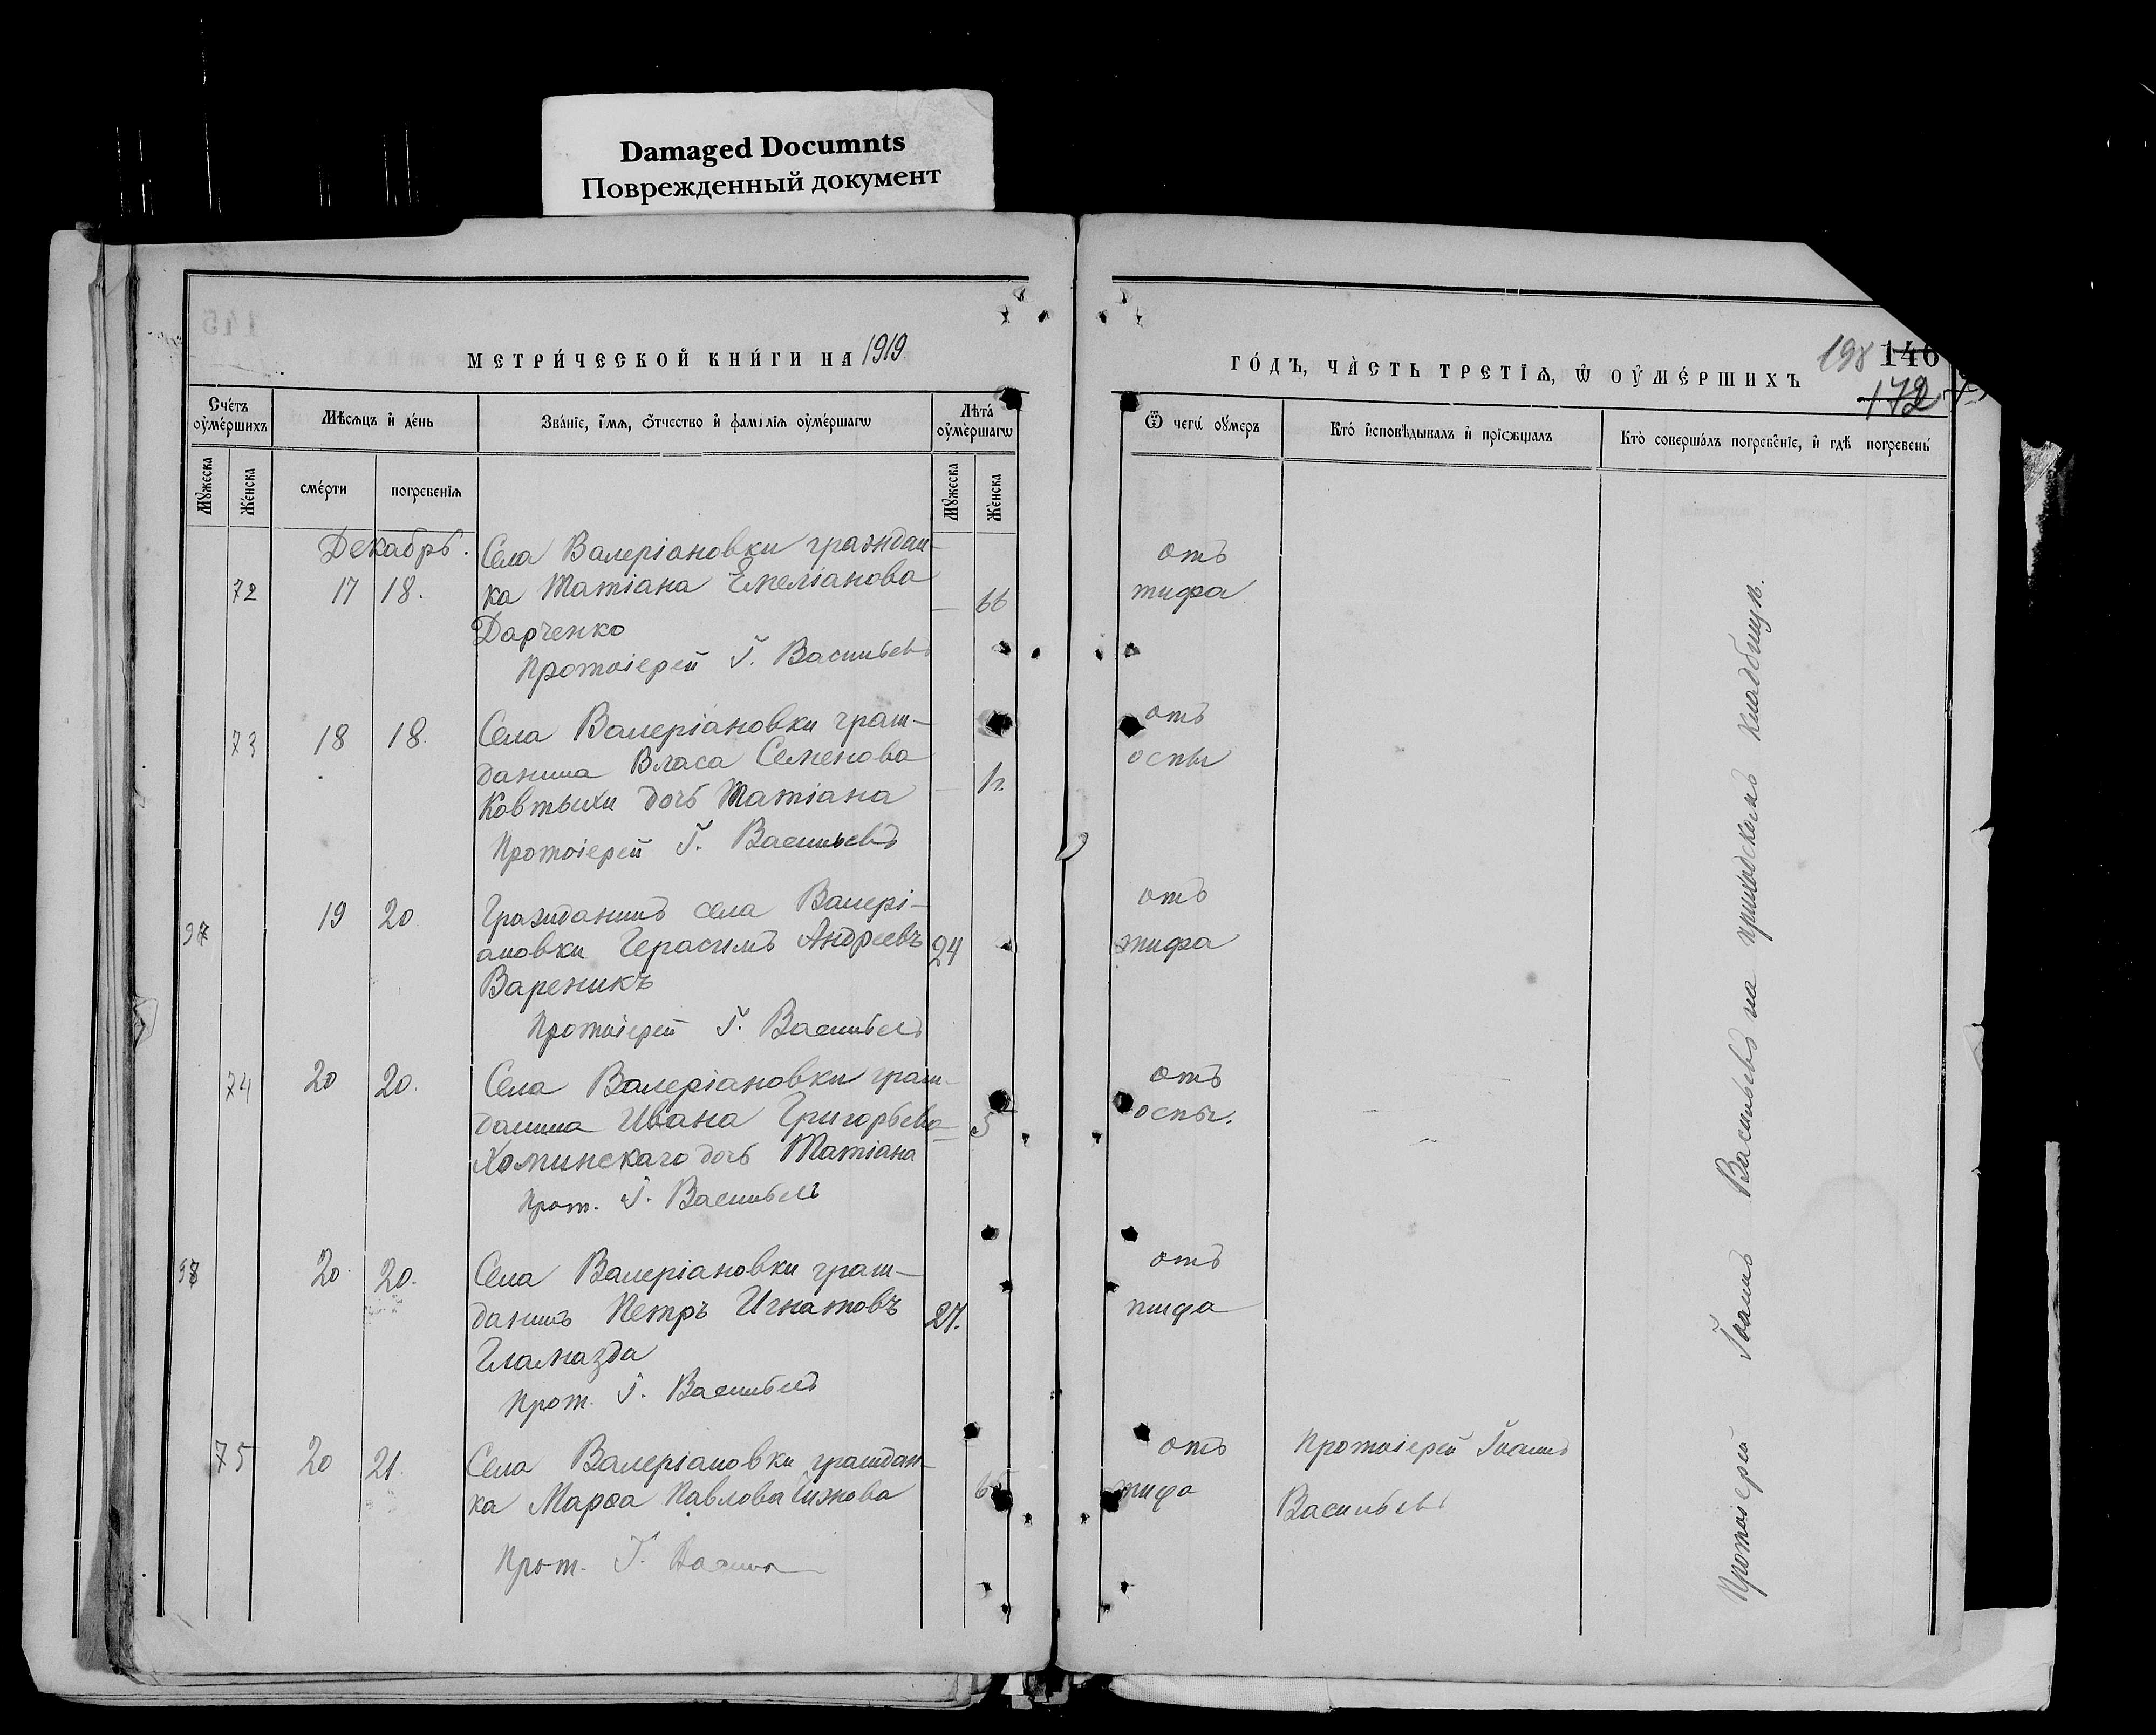 Damaged Documnts
Поврежденный документ
МЕТРИ́ЧЕСКОЙ КНИ́ГИ НА 1919
ГО́ДЪ, ЧА́СТЬ ТРЕТІѦ, Ѿ ОУ҆МЕ́РШИХЪ
198 146
172
Сче́тъ оу҆ме́ршихъ
Мѣ́сяцъ и҆ де́нь
Зва́ніе, и҆́мѧ, ѻ҆́тчество и҆ фамилія оу҆ме́ршагѡ
Лѣта̀ оу҆ме́ршагѡ
Ѿ чегѡ̀ оу҆́меръ
Кто̀ и҆сповѣ́дывалъ и҆ прїѡбща́лъ
Кто̀ соверша́лъ погребе́ніе, и҆ гдѣ̀ погребены̀
Мꙋ́жеска
Же́нска
сме́рти
погребенїѧ
Мꙋ́жеска
Же́нска
Декабрь.
Села Валеріановки граждан-
72 17 18. ка Татіана Емеліанова — 66
Дарченко
Протоіерей І. Васильевъ
отъ
тифа
73 18 18. Села Валеріановки граж-
данина Власа Семенова
Ковтыхи дочь Татіана —
Протоіерей І. Васильевъ
отъ
оспы
97 19 20 Гражданинъ села Валері-
ановки Герасимъ Андреевъ 24
Вареникъ
Протоіерей І. Васильевъ
отъ
тифа
74 20 20. Села Валеріановки граж-
данина Ивана Григорьева — 5
Хоминскаго дочь Татіана
Прот. І. Васильевъ
отъ
оспы.
98 20 20. Села Валеріановки граж-
данинъ Петръ Игнатовъ 27.
Гламазда
Прот. І. Васильевъ
отъ
тифа
75 20 21. Села Валеріановки граждан-
ка Марѳа Павлова Чижова 65
Прот. І. Васил
отъ
тифа
Протоіерей Іоаннъ
Васильевъ
Протоіерей Іоаннъ Васильевъ на приходскомъ кладбищѣ.